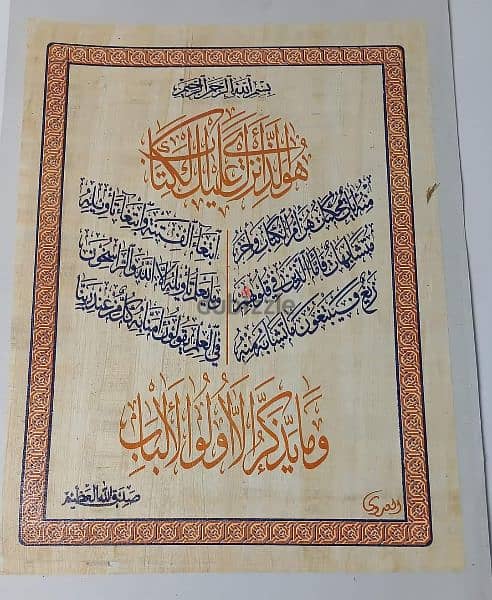 بسم الله الرحمن الرحيم
هو الذي أنزل عليك الكتاب
منه آيات محكمات هن أم الكتاب وأخر
متشابهات فأما الذين في قلوبهم
زيغ فيتبعون ما تشابه منه
ابتغاء الفتنة وابتغاء تأويله
وما يعلم تأويله إلا الله والراسخون
في العلم يقولون آمنا به كل من عند ربنا
dubizzle
وما يذكر إلا أولوا الألباب
صدق الله العظيم